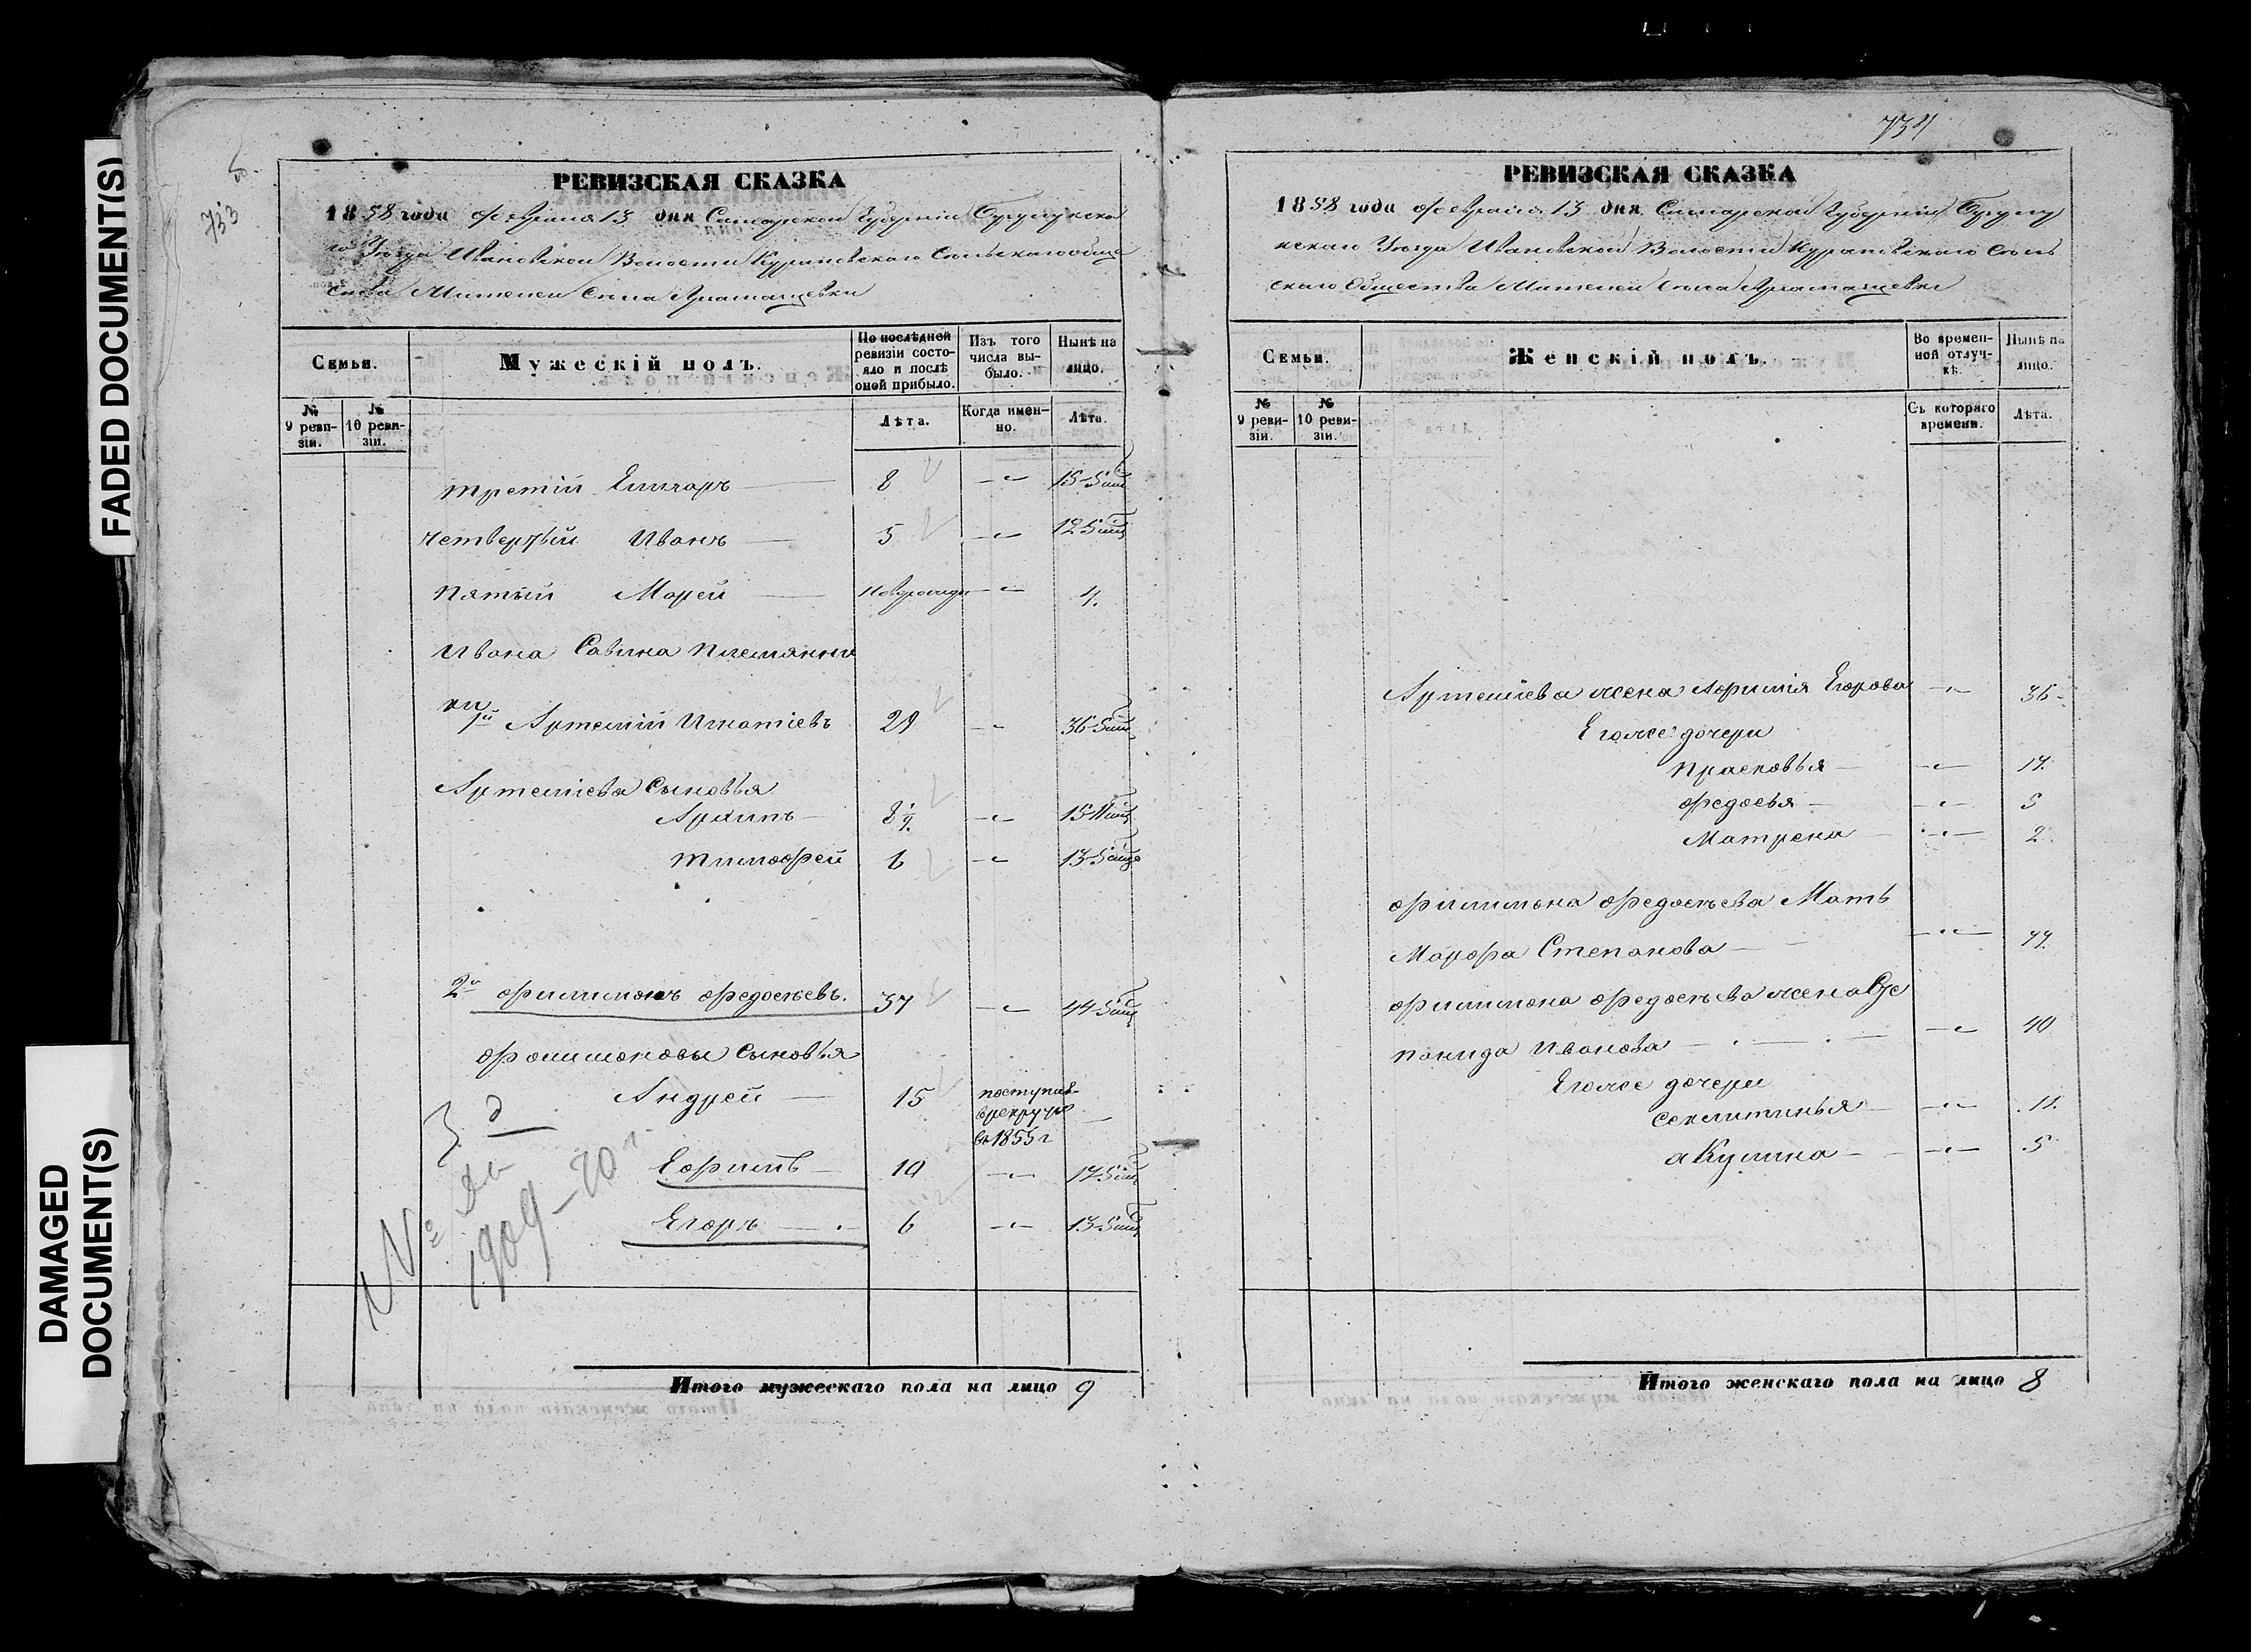 FADED DOCUMENT(S)
DAMAGED
DOCUMENT(S)
733
РЕВИЗСКАЯ СКАЗКА
1858 года февраля 13 дня Самарской Губерніи Бугурусланска
го Уѣзда Ивановской Волости Сельскаго обще
ства Села
Семьи.
Мужескій полъ.
По послѣдней
ревизіи состо-
яло и послѣ
оной прибыло.
Изъ того
числа вы-
было.
Нынѣ на
лицо.
№
9 реви-
зіи.
№
10 реви-
зіи.
Лѣта.
Когда имен-
но.
Лѣта.
третій 8 15
четвертый Иванъ 5 12
пятый Мокей новорожд 4.
Ивана Савина племянни
ки
1й Артемій Игнатіевъ 29 36
Артеміева Сыновья
Архипъ 8 15
Тимофей 6 13
2й Филимонъ Федосѣевъ. 37 44
Филимоновы Сыновья
Андрей 15 поступилъ
в рекруты
въ 1855 г
Ефимъ 10 17
Егоръ 6 13
№
1909
Итого мужескаго пола на лицо 9
734
РЕВИЗСКАЯ СКАЗКА
1858 года февраля 13 дня Самарской Губерніи
Уѣзда Ивановской Волости Сель
скаго Общества Села
Семьи.
Женскій полъ.
Во времен-
ной отлуч-
кѣ.
Нынѣ на
лицо.
№
9 реви-
зіи.
№
10 реви-
зіи.
Съ котораго
времени.
Лѣта.
Артеміева жена Афимія Егорова 36
Егоже дочери
Прасковья 14.
Федосья 5
Матрена 2
Филимона Федосѣева Мать
Марфа Степанова
Филимона Федосѣева жена Сте
понида Иванова 40
Егоже дочери
Секлитинья 11.
Акулина 5
Итого женскаго пола на лицо 8